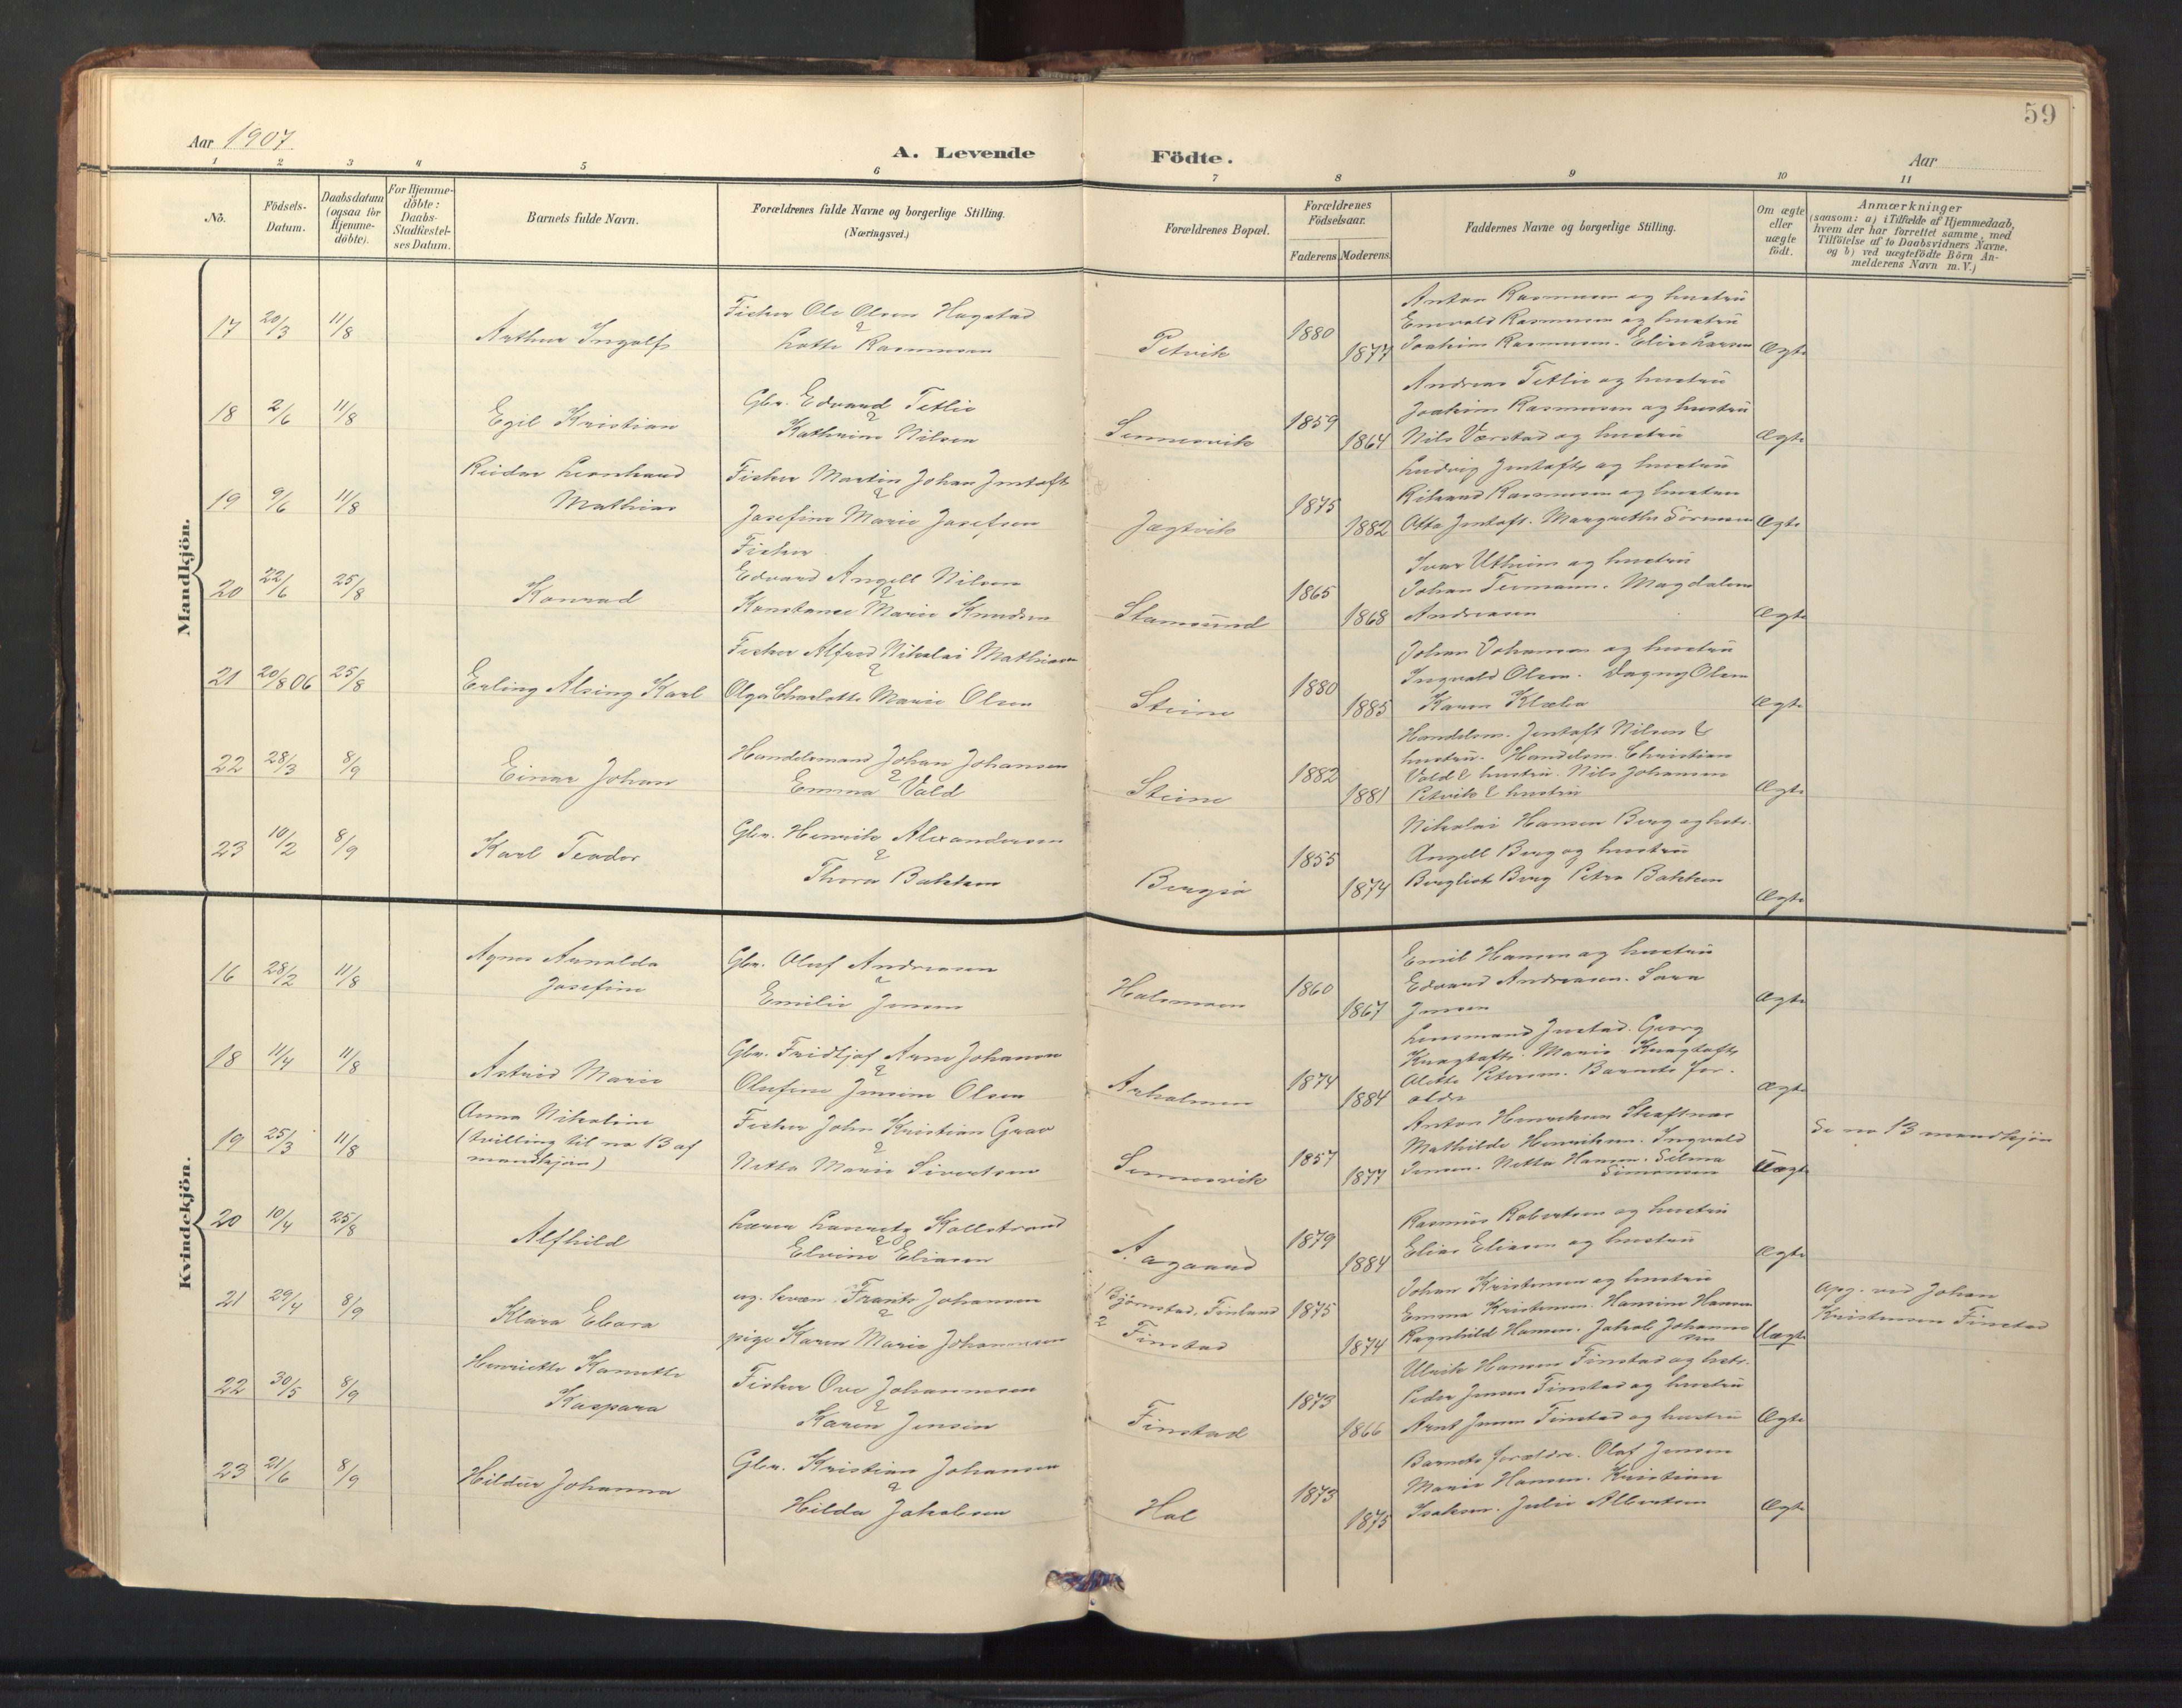 59
Aar 1907
A. Levende Födte.
Aar
1 2 3 4 5 6 7 8 9 10 11
No.
Födsels-Datum.
Daabsdatum (ogsaa for Hjemme-döbte).
For Hjemme-döbte: Daabs-Stadfæstel-ses Datum.
Barnets fulde Navn.
Forældrenes fulde Navne og borgerlige Stilling.
(Næringsvei.)
Forældrenes Bopæl.
Forældrenes Födselsaar.
Faderens Moderens
Faddernes Navne og borgerlige Stilling.
Om ægte eller uægte födt.
Anmærkninger
(saasom: a) i Tilfælde af Hjemmedaab,
hvem der har forrettet samme, med
Tilföielse af to Daabsvidners Navne,
og b) ved uægtefödte Börn An-
melderens Navn m. V.)
Mandkjön.
17 20/3 11/8 Arthur Ingolf
Fisker Ole Olsen Hagstad
& Lotte Rasmussen
Petvik 1880 1877
Anton Rasmussen og hustru
Enevald Rasmussen og hustru
Joakim Rasmussen. Elise Larsen
Ægte
18 2/6 11/8 Egil Kristian
Gbr. Edvard Tetlie
& Kathrine Nilsen
Sennesvik 1859 1864
Andreas Tetlie og hustru
Joakim Rasmussen og hustru
Nils Værstad og hustru
Ægte
19 9/6 11/8 Reidar Leonhard
Mathias
Fisker Martin Johan Jentoft
& Josefine Marie Josefsen
Jægtvik 1875 1882
Ludvig Jentoft og hustru
Rikard Rasmussen og hustru
Otto Jentoft. Margrethe Sörensen
Ægte
20 22/6 25/8 Konrad
Fisker
Edvard Angell Nilsen
& Konstance Marie Knudsen
Stamsund 1865 1868
Ivar Utheim og hustru
Johan Termann. Magdalene
Andreasen
Ægte
21 20/8 06 25/8 Erling Alsing Karl
Fisker Alfred Nikolai Mathisen
& Olga Charlotte Marie Olsen
Steine 1880 1885
Johan Johansen og hustru
Ingvald Olsen. Dagny Olsen
Karen Klæbo
Ægte
22 28/3 8/9 Einar Johan
Handelsmand Johan Johansen
& Emma Vold
Steine 1882 1881
Handelsm. Jentoft Nilsen &
hustru. Handelsm. Christian
Vold & hustru. Nils Johansen
Petvik & hustru
Ægte
23 10/2 8/9 Karl Teodor
Gbr. Henrik Alexandersen
& Thora Bakken
Bergsö 1855 1874
Nikolai Hansen Berg og hstr.
Angell Berg og hustru
Bergliot Berg Petra Bakken
Ægte
Kvindekjön.
16 28/2 11/8 Agnes Arnolda
Josefine
Gbr. Oluf Andreasen
& Emilie Jensen
Halsmoen 1860 1867
Emil Hansen og hustru
Edvard Andreasen. Sara
Jensen
Ægte
18 11/4 11/8 Astrid Marie
Gbr. Fridtjof Arne Johansen
& Olufine Jensine Olsen
Arholmen 1874 1884
Lensmand Justad. Georg
Kragtoft. Marie Kragtoft
Alette Petersen. Barnets for-
ældre
Ægte
19 25/3 11/8 Anna Nikoline
(tvilling til no 13 af
mandkjön)
Fisker John Kristian Grav
& Netta Marie Sivertsen
Sennesvik 1857 1877
Anton Henriksen Skaftnes
Mathilde Henriksen. Ingvald
Jensen. Netta Hansen. Selma
Simonsen
Uægte
Se no 13 mandkjön
20 10/4 25/8 Alfhild
Lærer Lauritz Kollstrand
& Elvine Eliasen
Aagaard 1879 1884
Rasmus Robertsen og hustru
Elias Eliasen og hustru
Ægte
21 29/4 8/9 Klara Ebora
ug. kvæn Frants Johansen
& pige Karen Marie Johannessen
1 Björnstad, Finland
2 Finstad
1875 1874
Johan Kristensen og hustru
Emma Kristensen. Hansine Hansen
Ragnhild Hansen. Jakob Johannes
sen
Uægte
Opg. ved Johan
Kristensen Finstad
22 30/5 8/9 Henriette Kanutte
Kaspara
Fisker Ove Johannesen
& Karen Jensen
Finstad 1873 1866
Ulrik Hansen Finstad og hstr.
Peder Jensen Finstad og hustru
Arnt Jensen Finstad og hustru
Ægte
23 21/6 8/9 Hildur Johanna
Gbr. Kristian Johansen
& Hilda Jakobsen
Hol 1873 1875
Barnets forældre. Olaf Jensen
Marie Hansen. Kristian
Isaksen. Julie Albertsen
Ægte